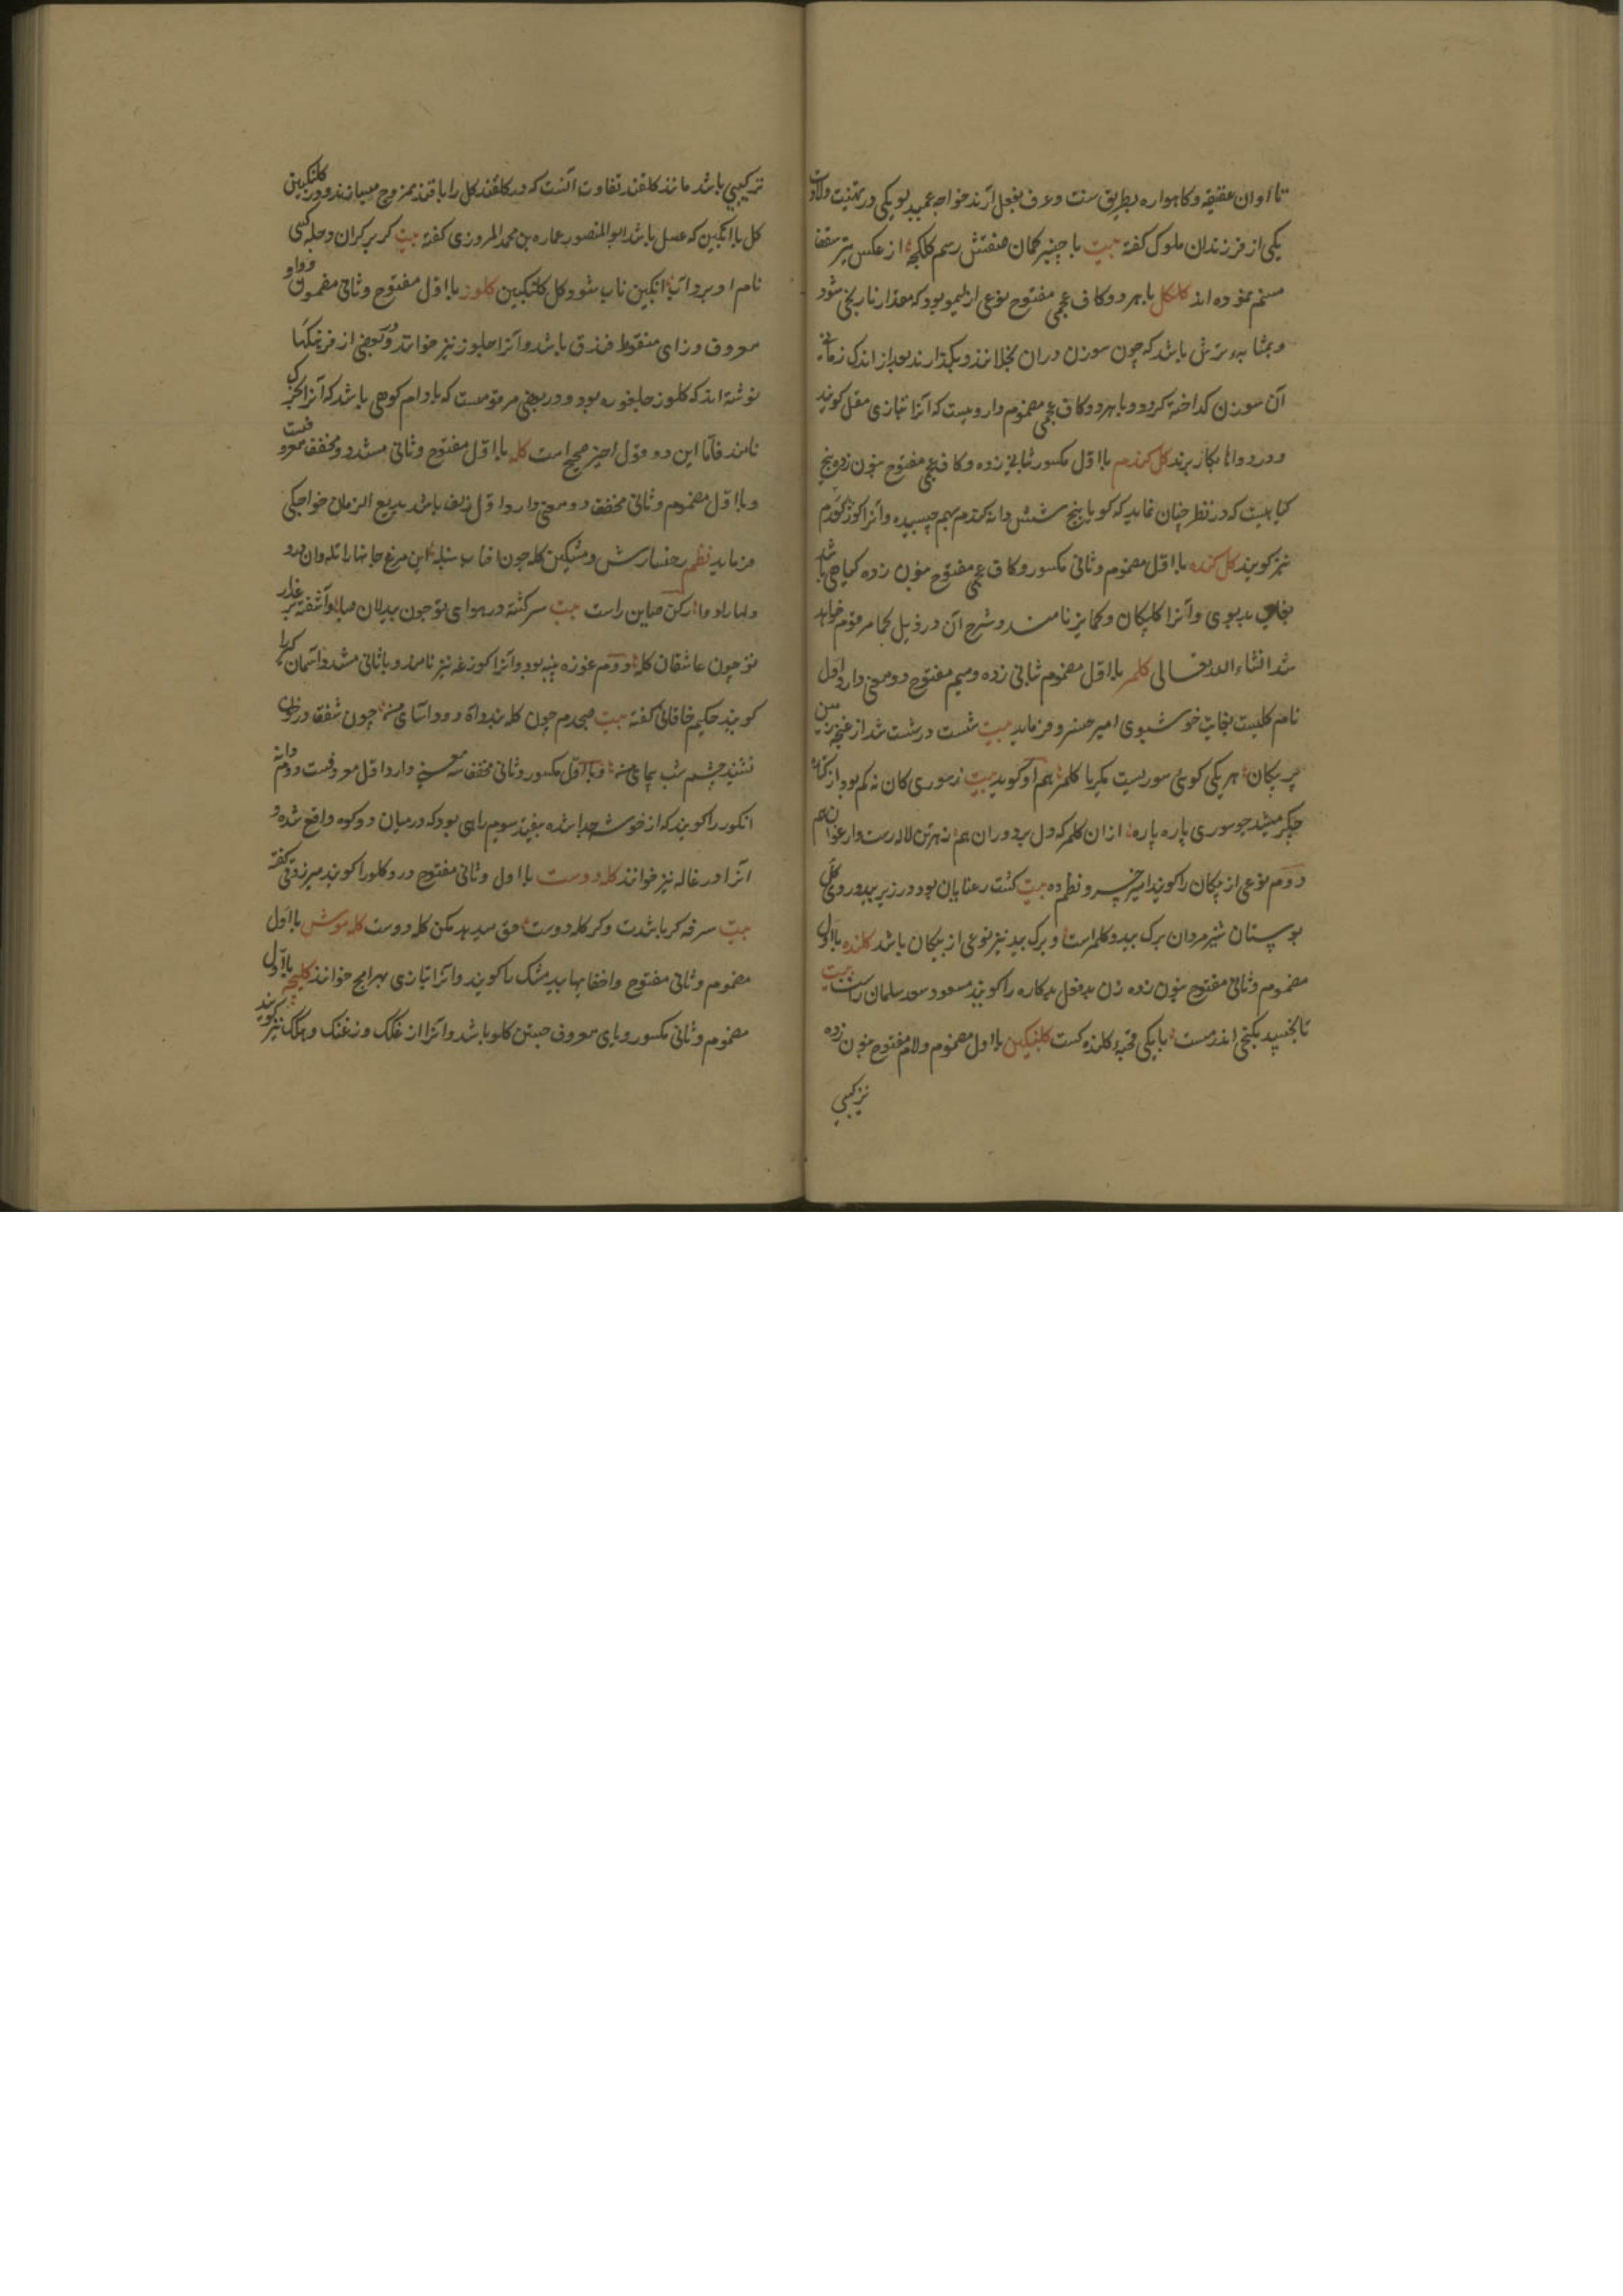 تا اوان عقیقه و کاهواره بطریق سنت و عرف بفعل آرند خواجه عمید لویکی در تهنیت ولادت
یکی از فرزندان ملوک کفته بیت با چنبر کمان هنفتش رسم کلکجه از عکس تیر سقف
منم نموده اند کلکل با هر دو کاف عجمی مفتوح نوعی از لیمو بود که مقدار نارنجی شود
و بمثابه ترش باشد که چون سوزن دران بخلانند و بکذارند بعد از اندک زمانی
آن سوزن کداخته کردد و با هر دو کاف عجمی مضموم دارویست که آنرا بتازی مقل کویند
و در دواها بکار برند کل کندم با اول مکسور بثانی زده و کاف عجمی مفتوح بنون زده نیخ
کیاهیست که در نظر چنان نماید که کویا پنج شش دانه کندم بهم چسبیده و آنرا کوز کندم
نیز کویند کل کنده با اول مضموم و ثانی مکسور و کاف عجمی مفتوح بنون زده کیاهی باشد
بغایت بدبوی و آنرا کلیکان و کما نیز نامند و شرح آن در ذیل کما مرقوم خواهد
شد انشاء الله تعالی کلمر با اول مضموم بثانی زده و میم مفتوح دو معنی دارد اول
نام کلیست بغایت خوشبوی امیر خسرو فرماید بیت شست درشت شد از غنچه
پر پیکان هر یکی کوئی سوریست مکر یا کلمر هم او کوید بیت ز سوری کان نه کم بود از کناره
جکر میشد چو سوری پاره پاره ازان کلمر که دل برد و ران هم نه بهترین لاله رست و ارغوان هم
دوم نوعی از پیکان را کویند امیر خسرو نظم نموده بیت کشت رعنایان بود در زیر بید و روی کل
بوستان شیر مردان برک بید و کلمر است و برک بید نیز نوعی از پیکان باشد کلنده با اول
مضموم و ثانی مفتوح بنون زده زن بدفعل بدکاره را کویند مسعود سعد سلمان راست بیت
تا بخسپد یکیکی اندر مست با یکی قحبه کلنده کست کلنکبین با اول مضموم و لام مفتوح بنون زده
ترکیبی
ترکیبی باشد مانند کلقند تفاوت آنست که در کلقند کل را با قند ممزوج میسازند و در کلنکبین
کل با انکبین که عسل باشد ابوالمنصور عماره بن محمد المروزی کفته بیت کر بر کران دجله کسی
نام او برد آب انکبین ناب شود کل کلنکبین کلوز با اول مفتوح و ثانی مضموم و واو
معروف و زای منقوط فندق باشد و آنرا جلوز نیز خوانند و در بعضی از فرهنکها
نوشته اند که کلوز جلغوزه بود و در بعضی مرقومست که بادام کوهی باشد که آنرا بخرک
نامند فاما این دو قول اخیر صحیح است کله با اول مفتوح و ثانی مشدد و مخفف معروفست
و با اول مضموم و ثانی مخفف دو معنی دارد اول زلف باشد بدیع الزمان خواجکی
فرماید نظم رخسارش و مشکین کله چون آفتاب سنبله این مرغ جانها را تله وان درد
دلها را دوا رکن صاین راست بیت سرکشته در هوای تو چون بیدلان صبا و آشفته بر عذار
تو چون عاشقان کله دوم غوزه پنبه بود و آنرا کوزغه نیز نامند و با ثانی مشدد آسمان کیر را
کویند حکیم خاقانی کفته بیت صبحدم چون کله بندد آه دود آسای من چون شفق در خون
نشیند چشم شب پیمای من و با اول مکسور و ثانی مخفف سه معنی دارد اول معروفست دوم دانه
انکور را کویند که از خوشه جدا شده بیفتد سوم راهی بود که درمیان دو کوه واقع شده و
آنرا درغاله نیز خوانند کله دوست با اول و ثانی مفتوح در و کلو را کویند میرزوقی کفته
بیت سرفه کر باشدت و کر کله دوست دق سل بد مکن کله دوست کله موش با اول
مضموم و ثانی مفتوح و اخفا بها بیدمشک را کویند و آنرا بتازی بهرامج خوانند کلیجه با اول
مضموم و ثانی مکسور و یای معروف جستن کلو باشد و آنرا از غلک و زغنک و هلک نیز کویند